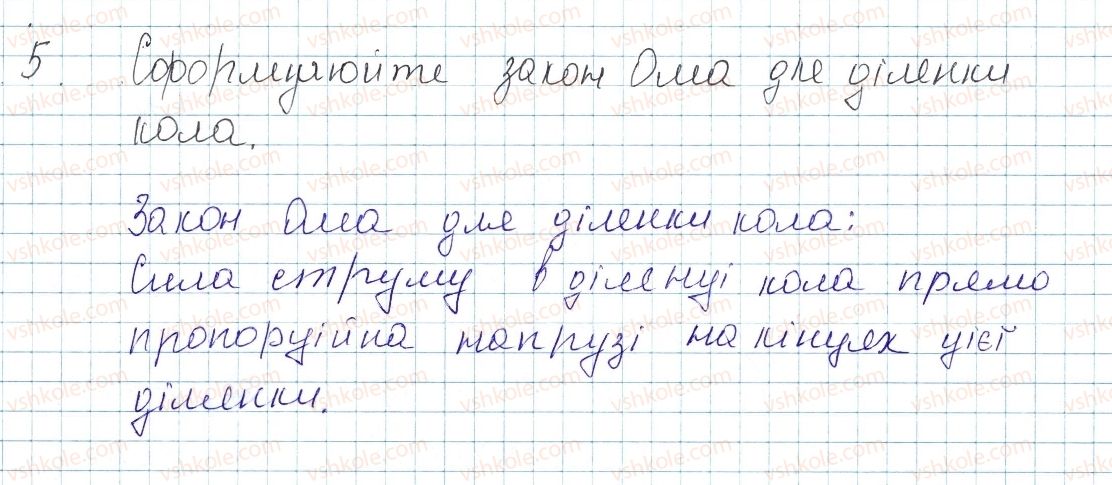 5. Сформулюйте закон Ома для ділянки
кола.
Закон Ома для ділянки кола:
Сила струму в ділянці кола прямо
пропорційна напрузі на кінцях цієї
ділянки.